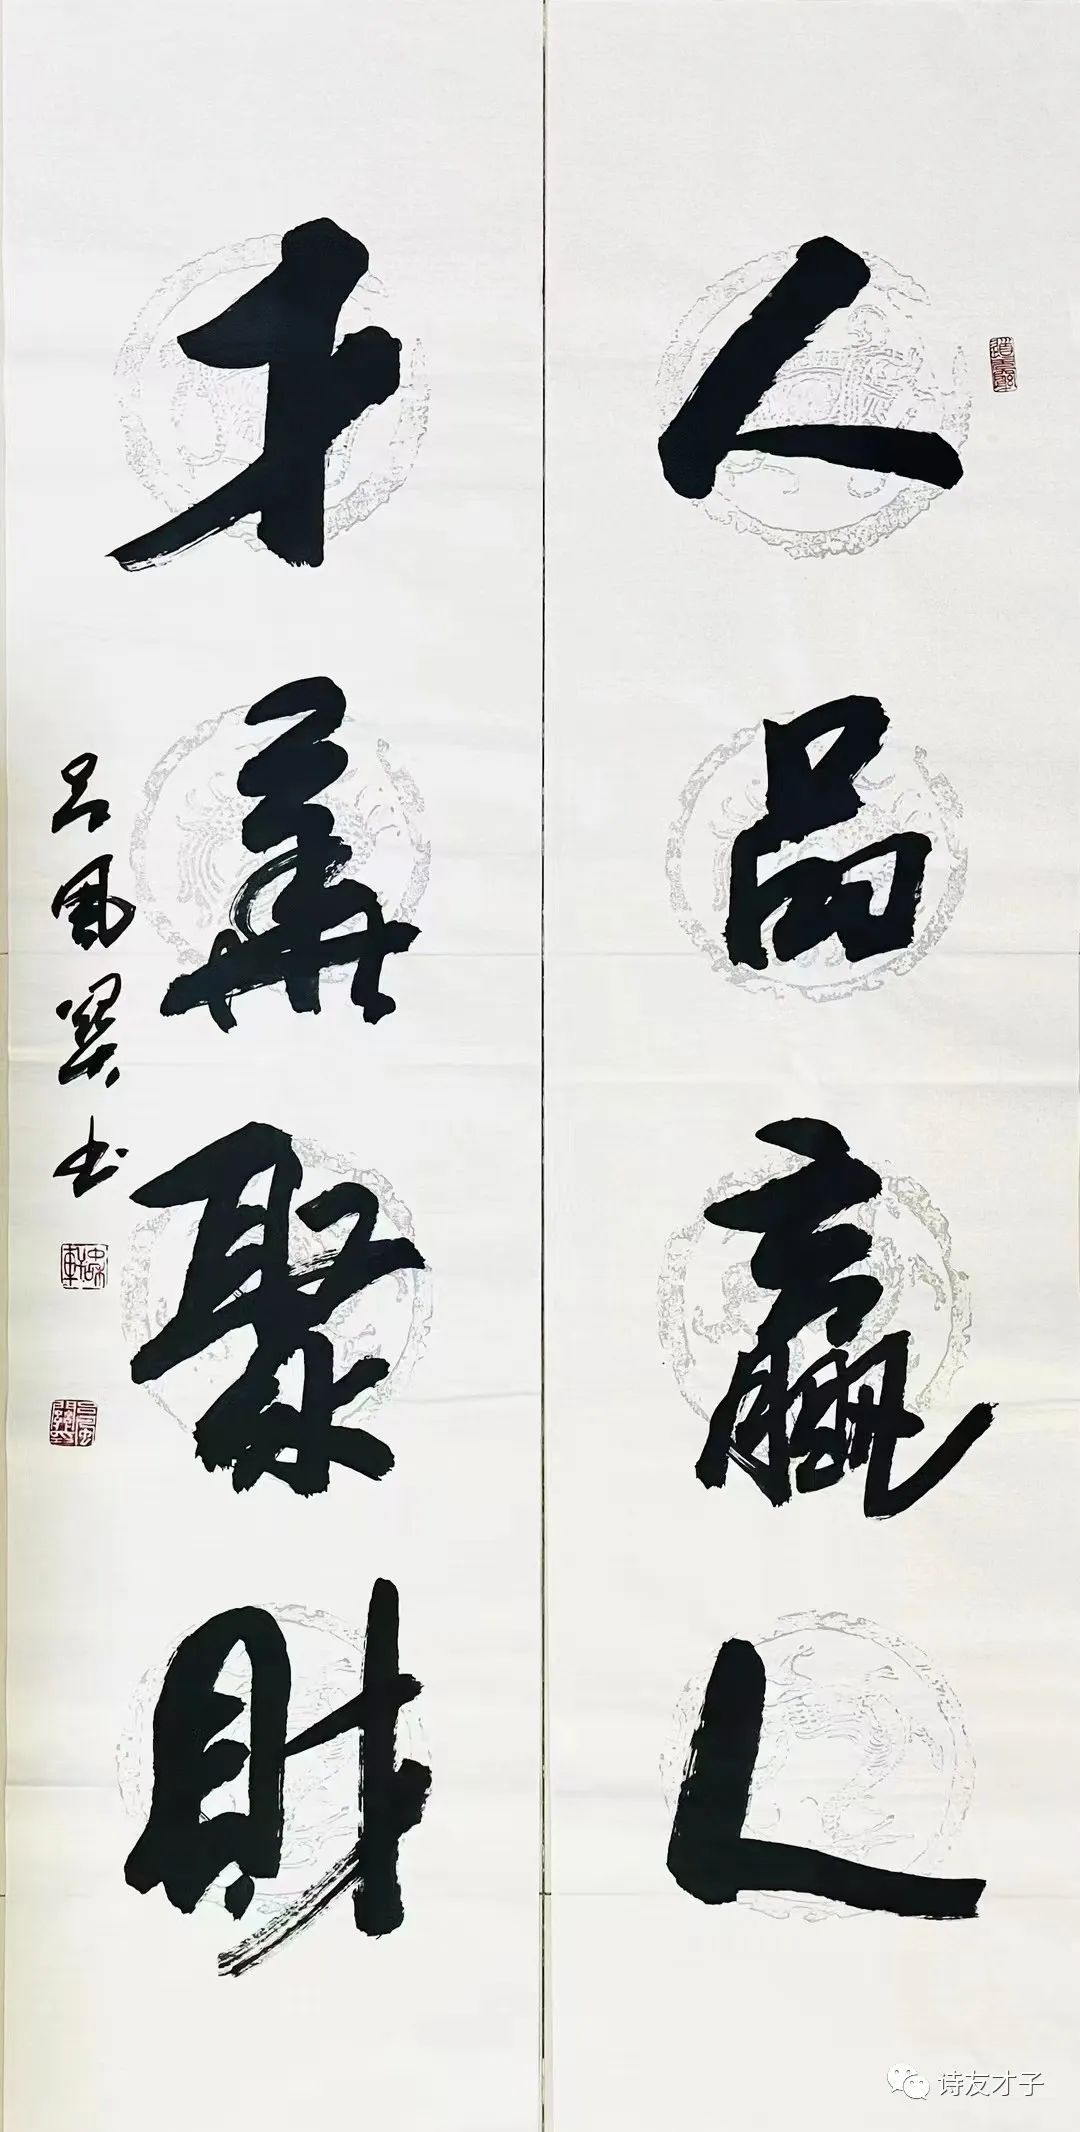 人品赢人
才华聚财
吕风翼书
诗友才子